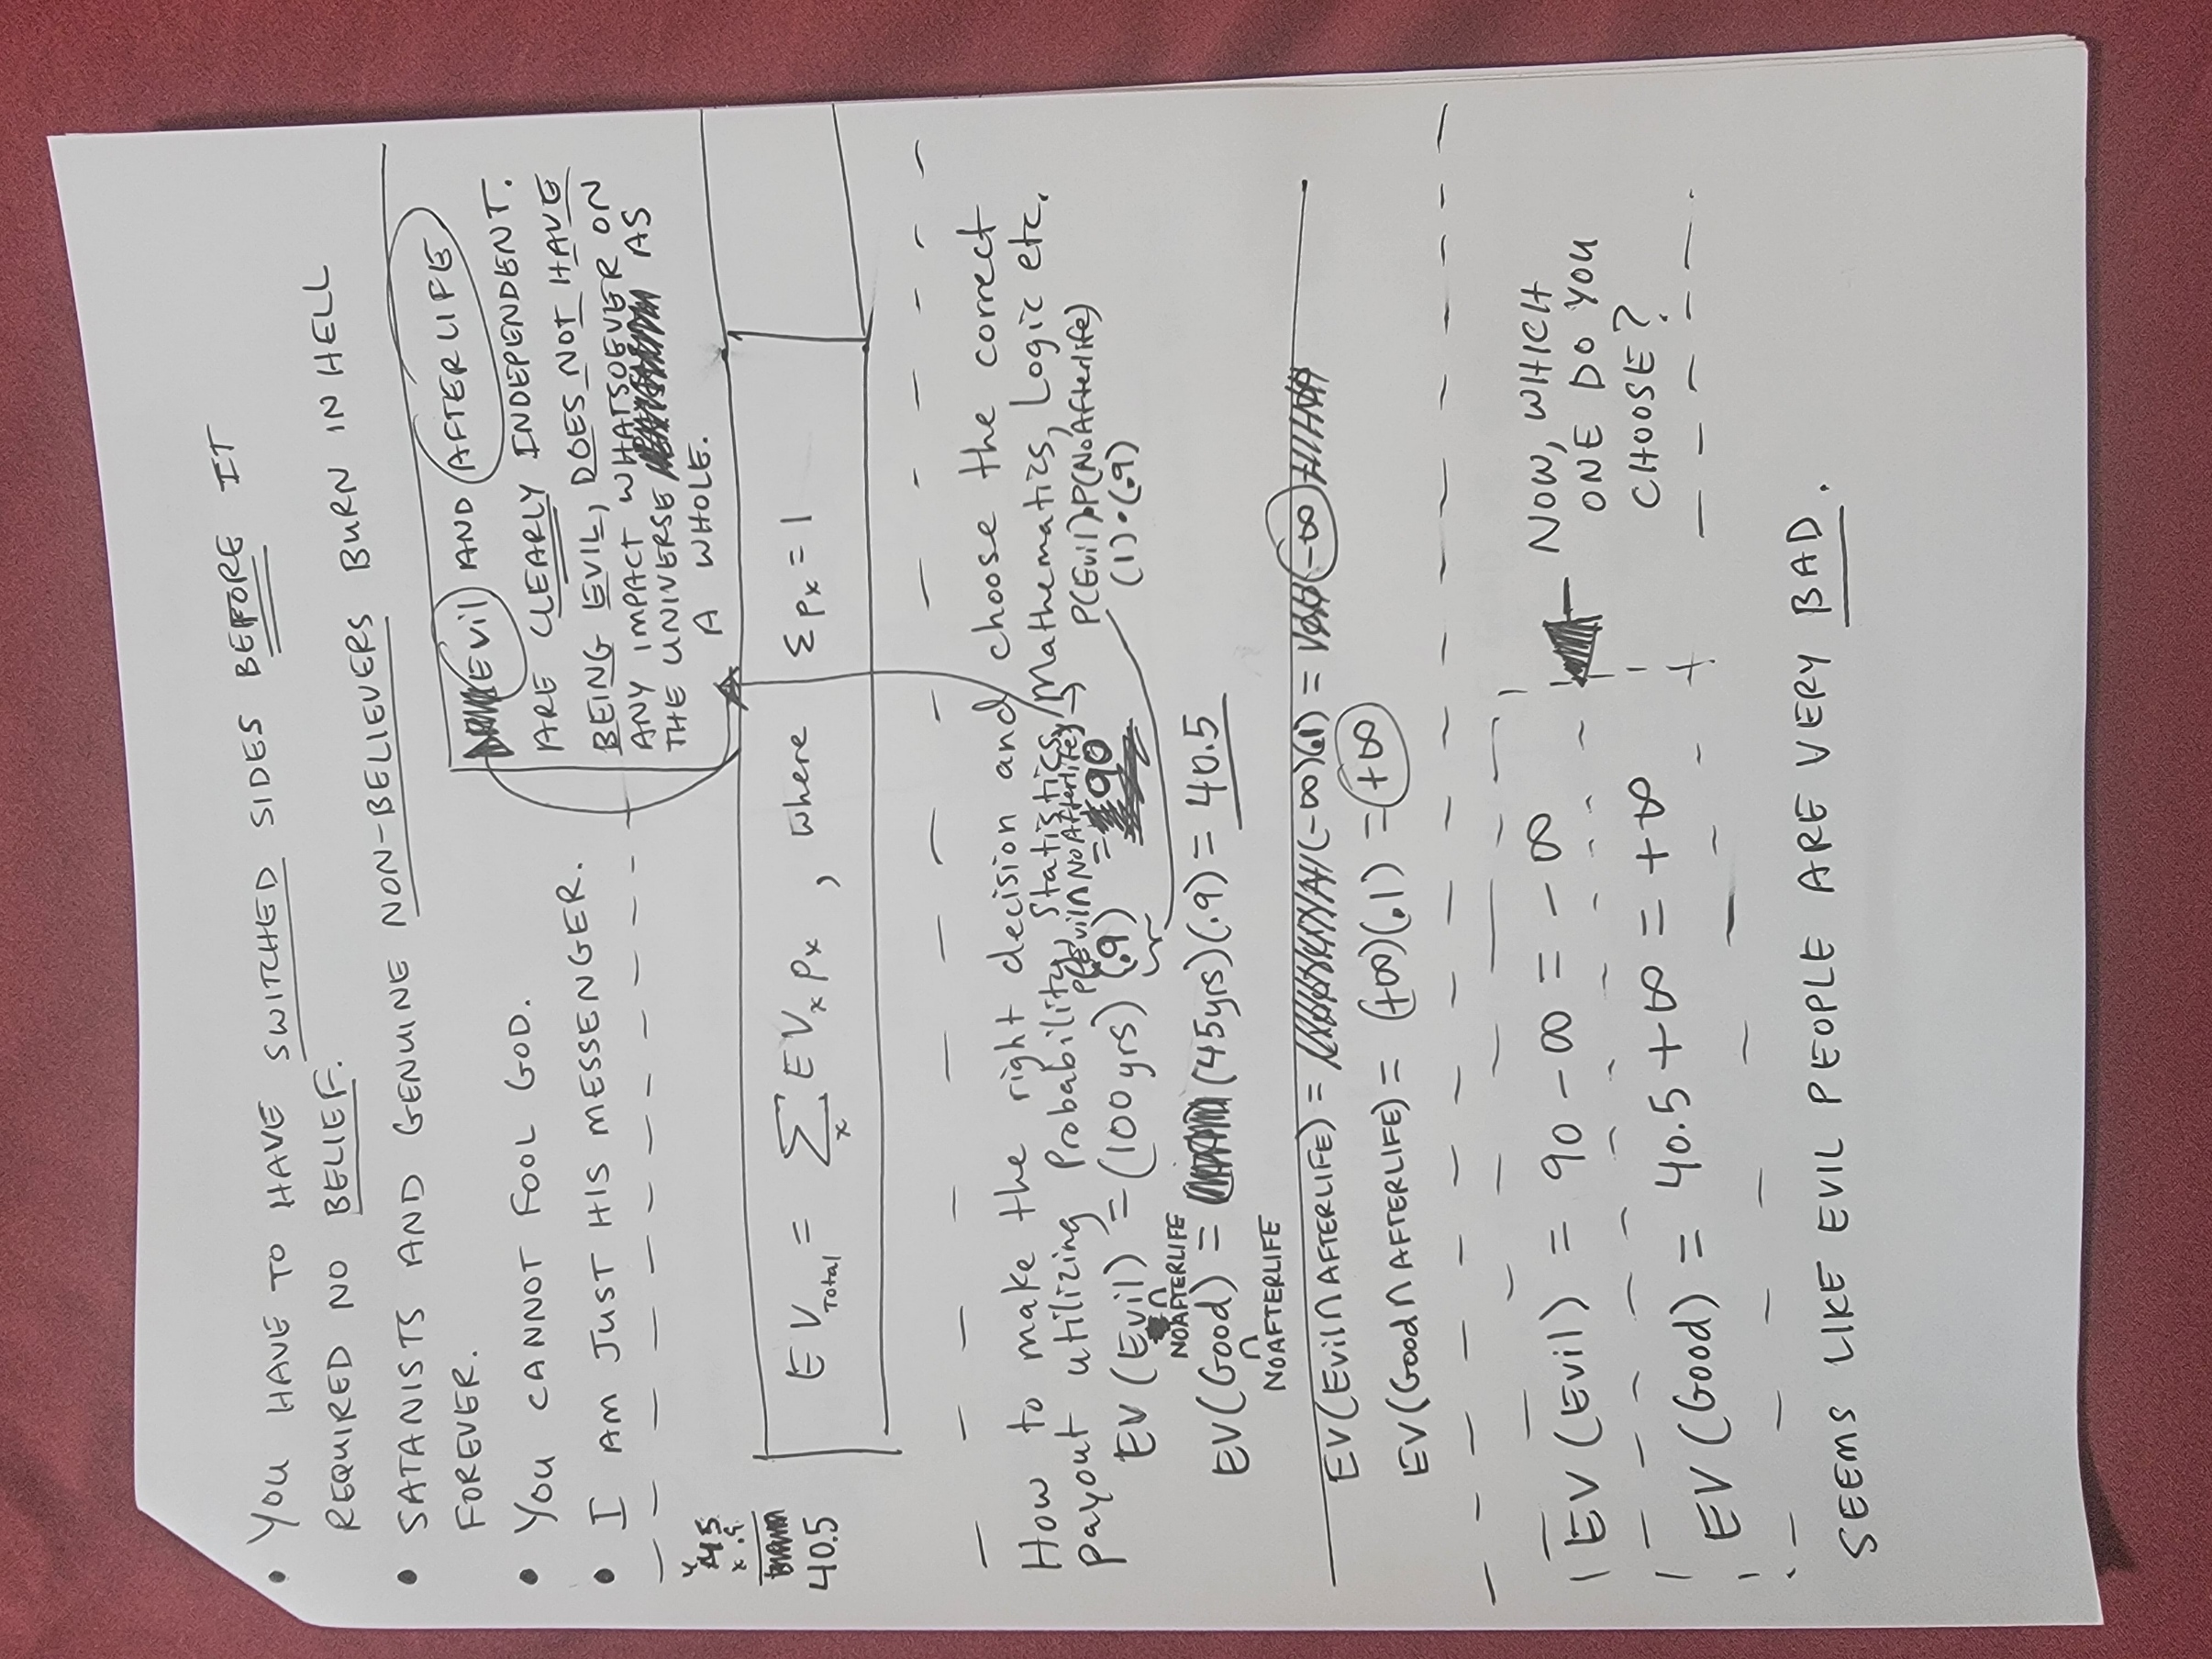 • YOU HAVE TO HAVE SWITCHED SIDES BEFORE IT
REQUIRED NO BELIEF.
• SATANISTS AND GENUINE NON-BELIEVERS BURN IN HELL
FOREVER.
• YOU CANNOT FOOL GOD.
• I AM JUST HIS MESSENGER.
EVIL AND AFTERLIFE
ARE CLEARLY INDEPENDENT.
BEING EVIL, DOES NOT HAVE
ANY IMPACT WHATSOEVER ON
THE UNIVERSE AS
A WHOLE.
4
45
x .9
40.5
EV_Total = Σ_x EV_x p_x , where Σ p_x = 1
How to make the right decision and choose the correct
payout utilizing Probability, Statistics, Mathematics, Logic etc.
P(Evil∩NoAfterlife) → P(Evil)·P(NoAfterlife)
EV (Evil) = (100 yrs) (.9) = 90 (1)•(.9)
∩
NOAFTERLIFE
EV (Good) = (45yrs)(.9) = 40.5
∩
NOAFTERLIFE
EV(Evil∩AFTERLIFE) = (-∞)(.1) = -∞
EV(Good∩AFTERLIFE) = (+∞)(.1) = +∞
EV (Evil) = 90 - ∞ = - ∞
EV (Good) = 40.5 + ∞ = + ∞
NOW, WHICH
ONE DO YOU
CHOOSE?
SEEMS LIKE EVIL PEOPLE ARE VERY BAD.